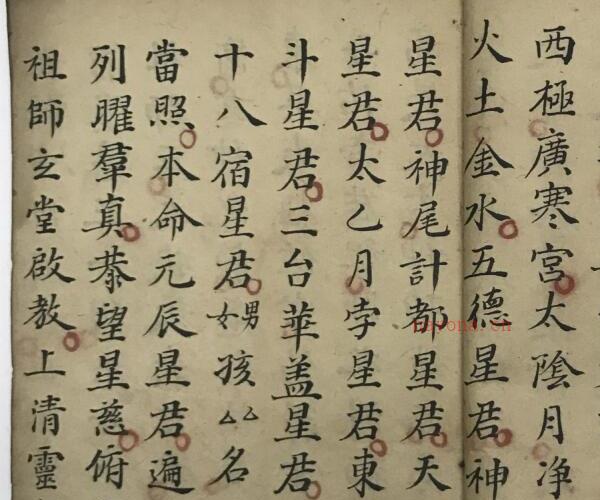 西極廣寒宮太陰月净
火土金水五德星君神
星君神尾計都星君天
星君太乙月孛星君東
斗星君三台華盖星君
十八宿星君男女孩乙厶名
當照本命元辰星君遍
列曜羣真恭望星慈俯
祖師玄堂啟教上清靈
nayona.cn